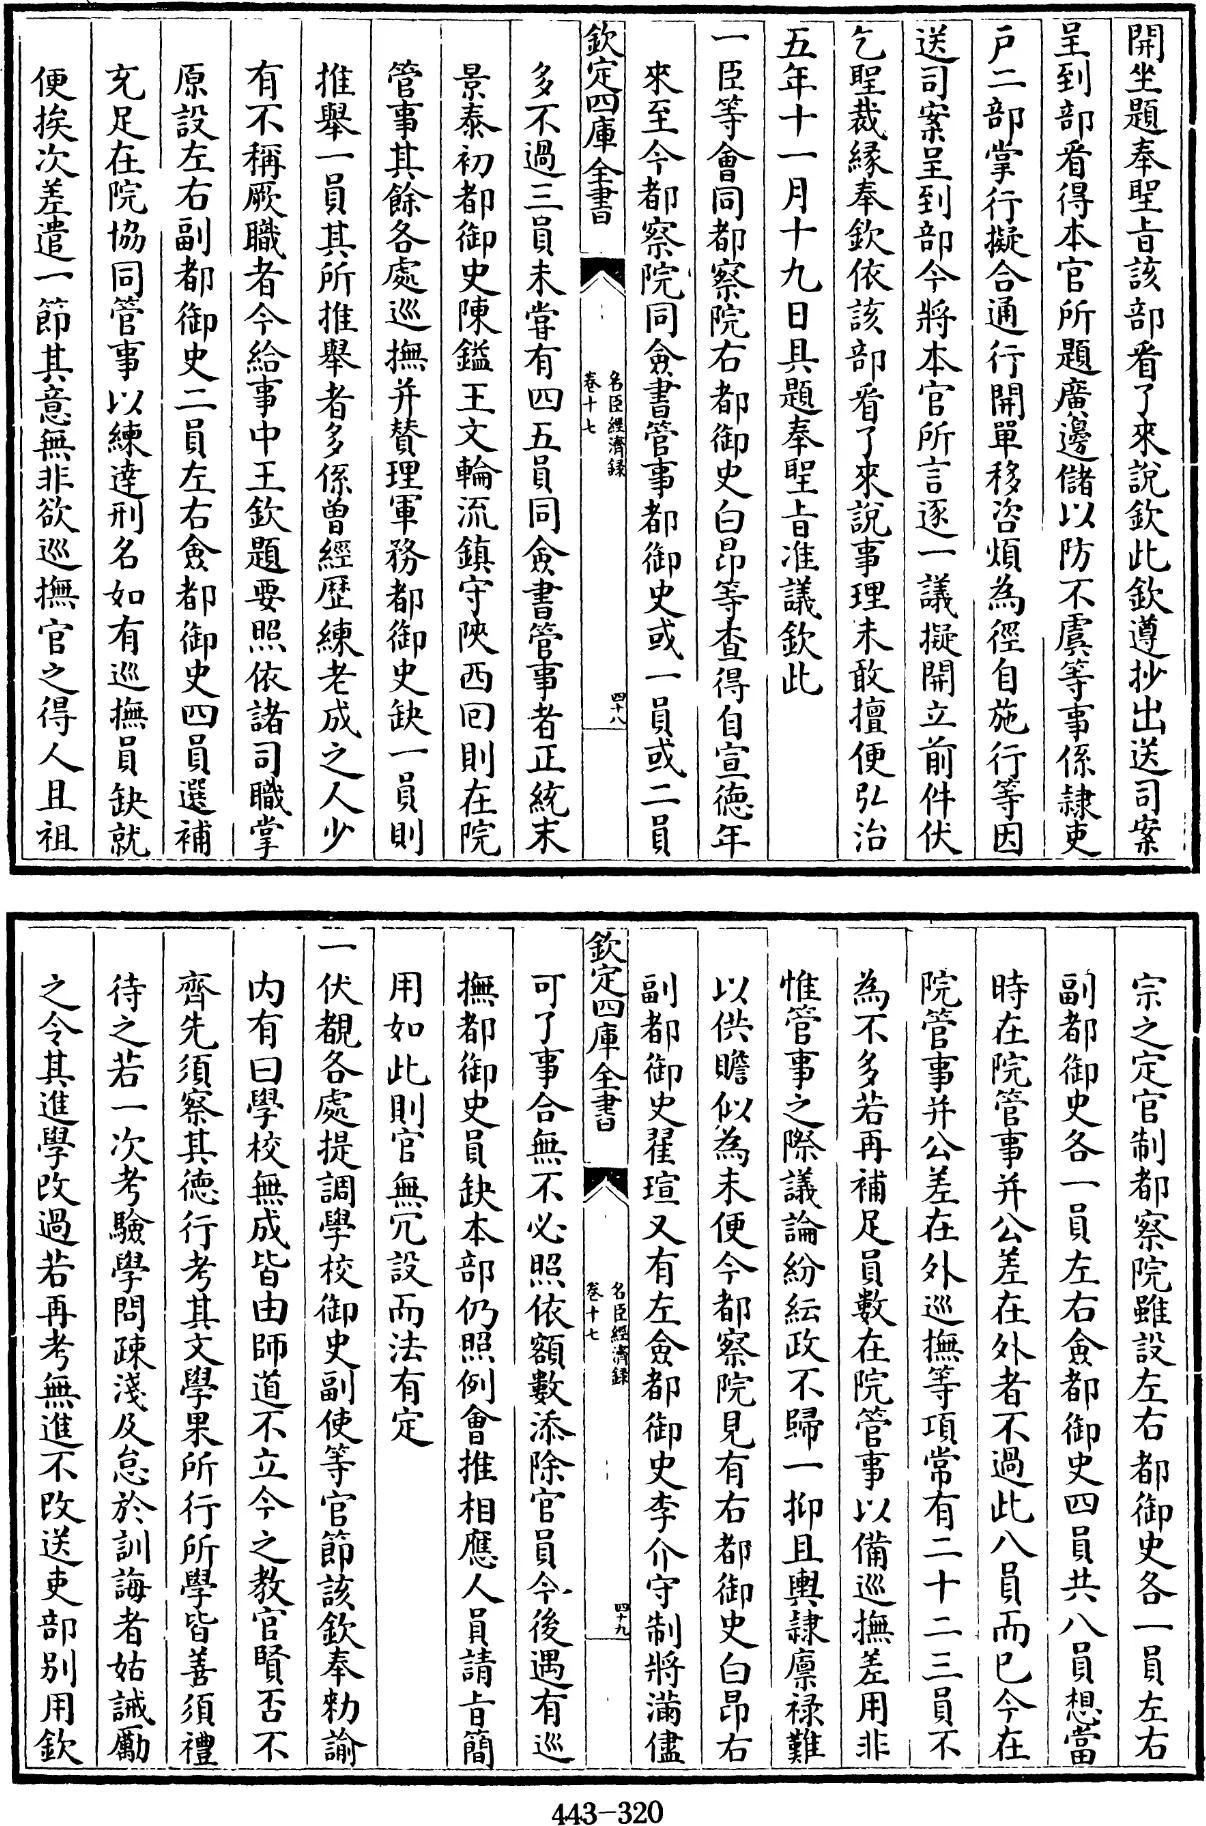 開坐題奉聖旨該部看了來說欽此欽遵抄出送司案
呈到部看得本官所題廣邊儲以防不虞等事係隸吏
戶二部掌行擬合通行開單移咨煩為徑自施行等因
送司案呈到部今將本官所言逐一議擬開立前件伏
乞聖裁緣奉欽依該部看了來說事理未敢擅便弘治
五年十一月十九日具題奉聖旨准議欽此
一臣等會同都察院右都御史白昂等查得自宣德年
來至今都察院同僉書管事都御史或一員或二員
欽定四庫全書
名臣經濟録
卷十七
四十八
多不過三員未嘗有四五員同僉書管事者正統末
景泰初都御史陳鎰王文輪流鎮守陝西囘則在院
管事其餘各處巡撫并贊理軍務都御史缺一員則
推舉一員其所推舉者多係曾經歷練老成之人少
有不稱厥職者今給事中王欽題要照依諸司職掌
原設左右副都御史二員左右僉都御史四員選補
充足在院協同管事以練達刑名如有巡撫員缺就
便挨次差遣一節其意無非欲巡撫官之得人且祖
宗之定官制都察院雖設左右都御史各一員左右
副都御史各一員左右僉都御史四員共八員想當
時在院管事并公差在外者不過此八員而已今在
院管事并公差在外巡撫等項常有二十二三員不
為不多若再補足員數在院管事以備巡撫差用非
惟管事之際議論紛紜政不歸一抑且輿隸廪禄難
以供贍似為未便今都察院見有右都御史白昂右
副都御史翟瑄又有左僉都御史李介守制將滿儘
欽定四庫全書
名臣經濟録
卷十七
四十九
可了事合無不必照依額數添除官員今後遇有巡
撫都御史員缺本部仍照例會推相應人員請旨簡
用如此則官無冗設而法有定
一伏覩各處提調學校御史副使等官節該欽奉勑諭
内有曰學校無成皆由師道不立今之教官賢否不
齊先須察其德行考其文學果所行所學皆善須禮
待之若一次考驗學問疎淺及怠於訓誨者姑誡勵
之令其進學改過若再考無進不改送吏部别用欽
443-320